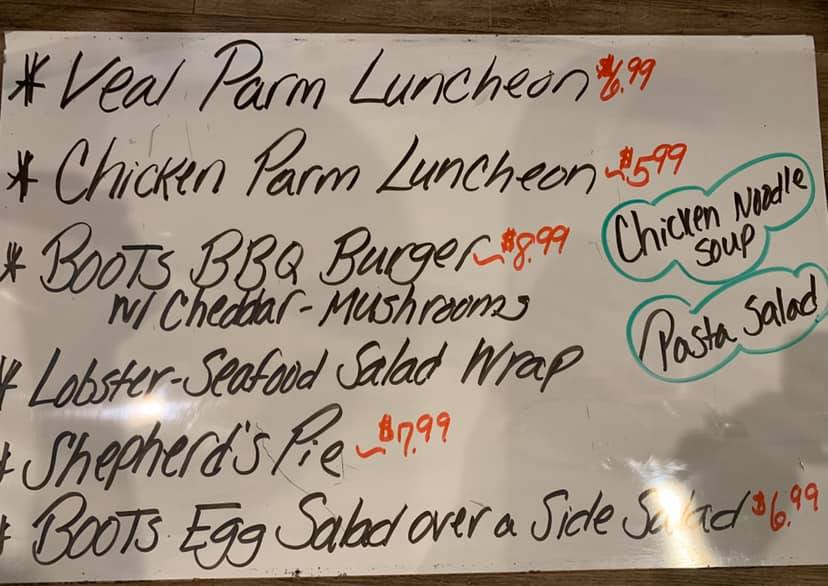 * Veal Parm Luncheon $6.99
* Chicken Parm Luncheon ~$5.99
* Boots BBQ Burger ~$8.99
w/ Cheddar-Mushrooms
* Lobster-Seafood Salad Wrap
* Shepherd's Pie ~$7.99
* Boots Egg Salad over a Side Salad $6.99
Chicken Noodle
Soup
Pasta Salad